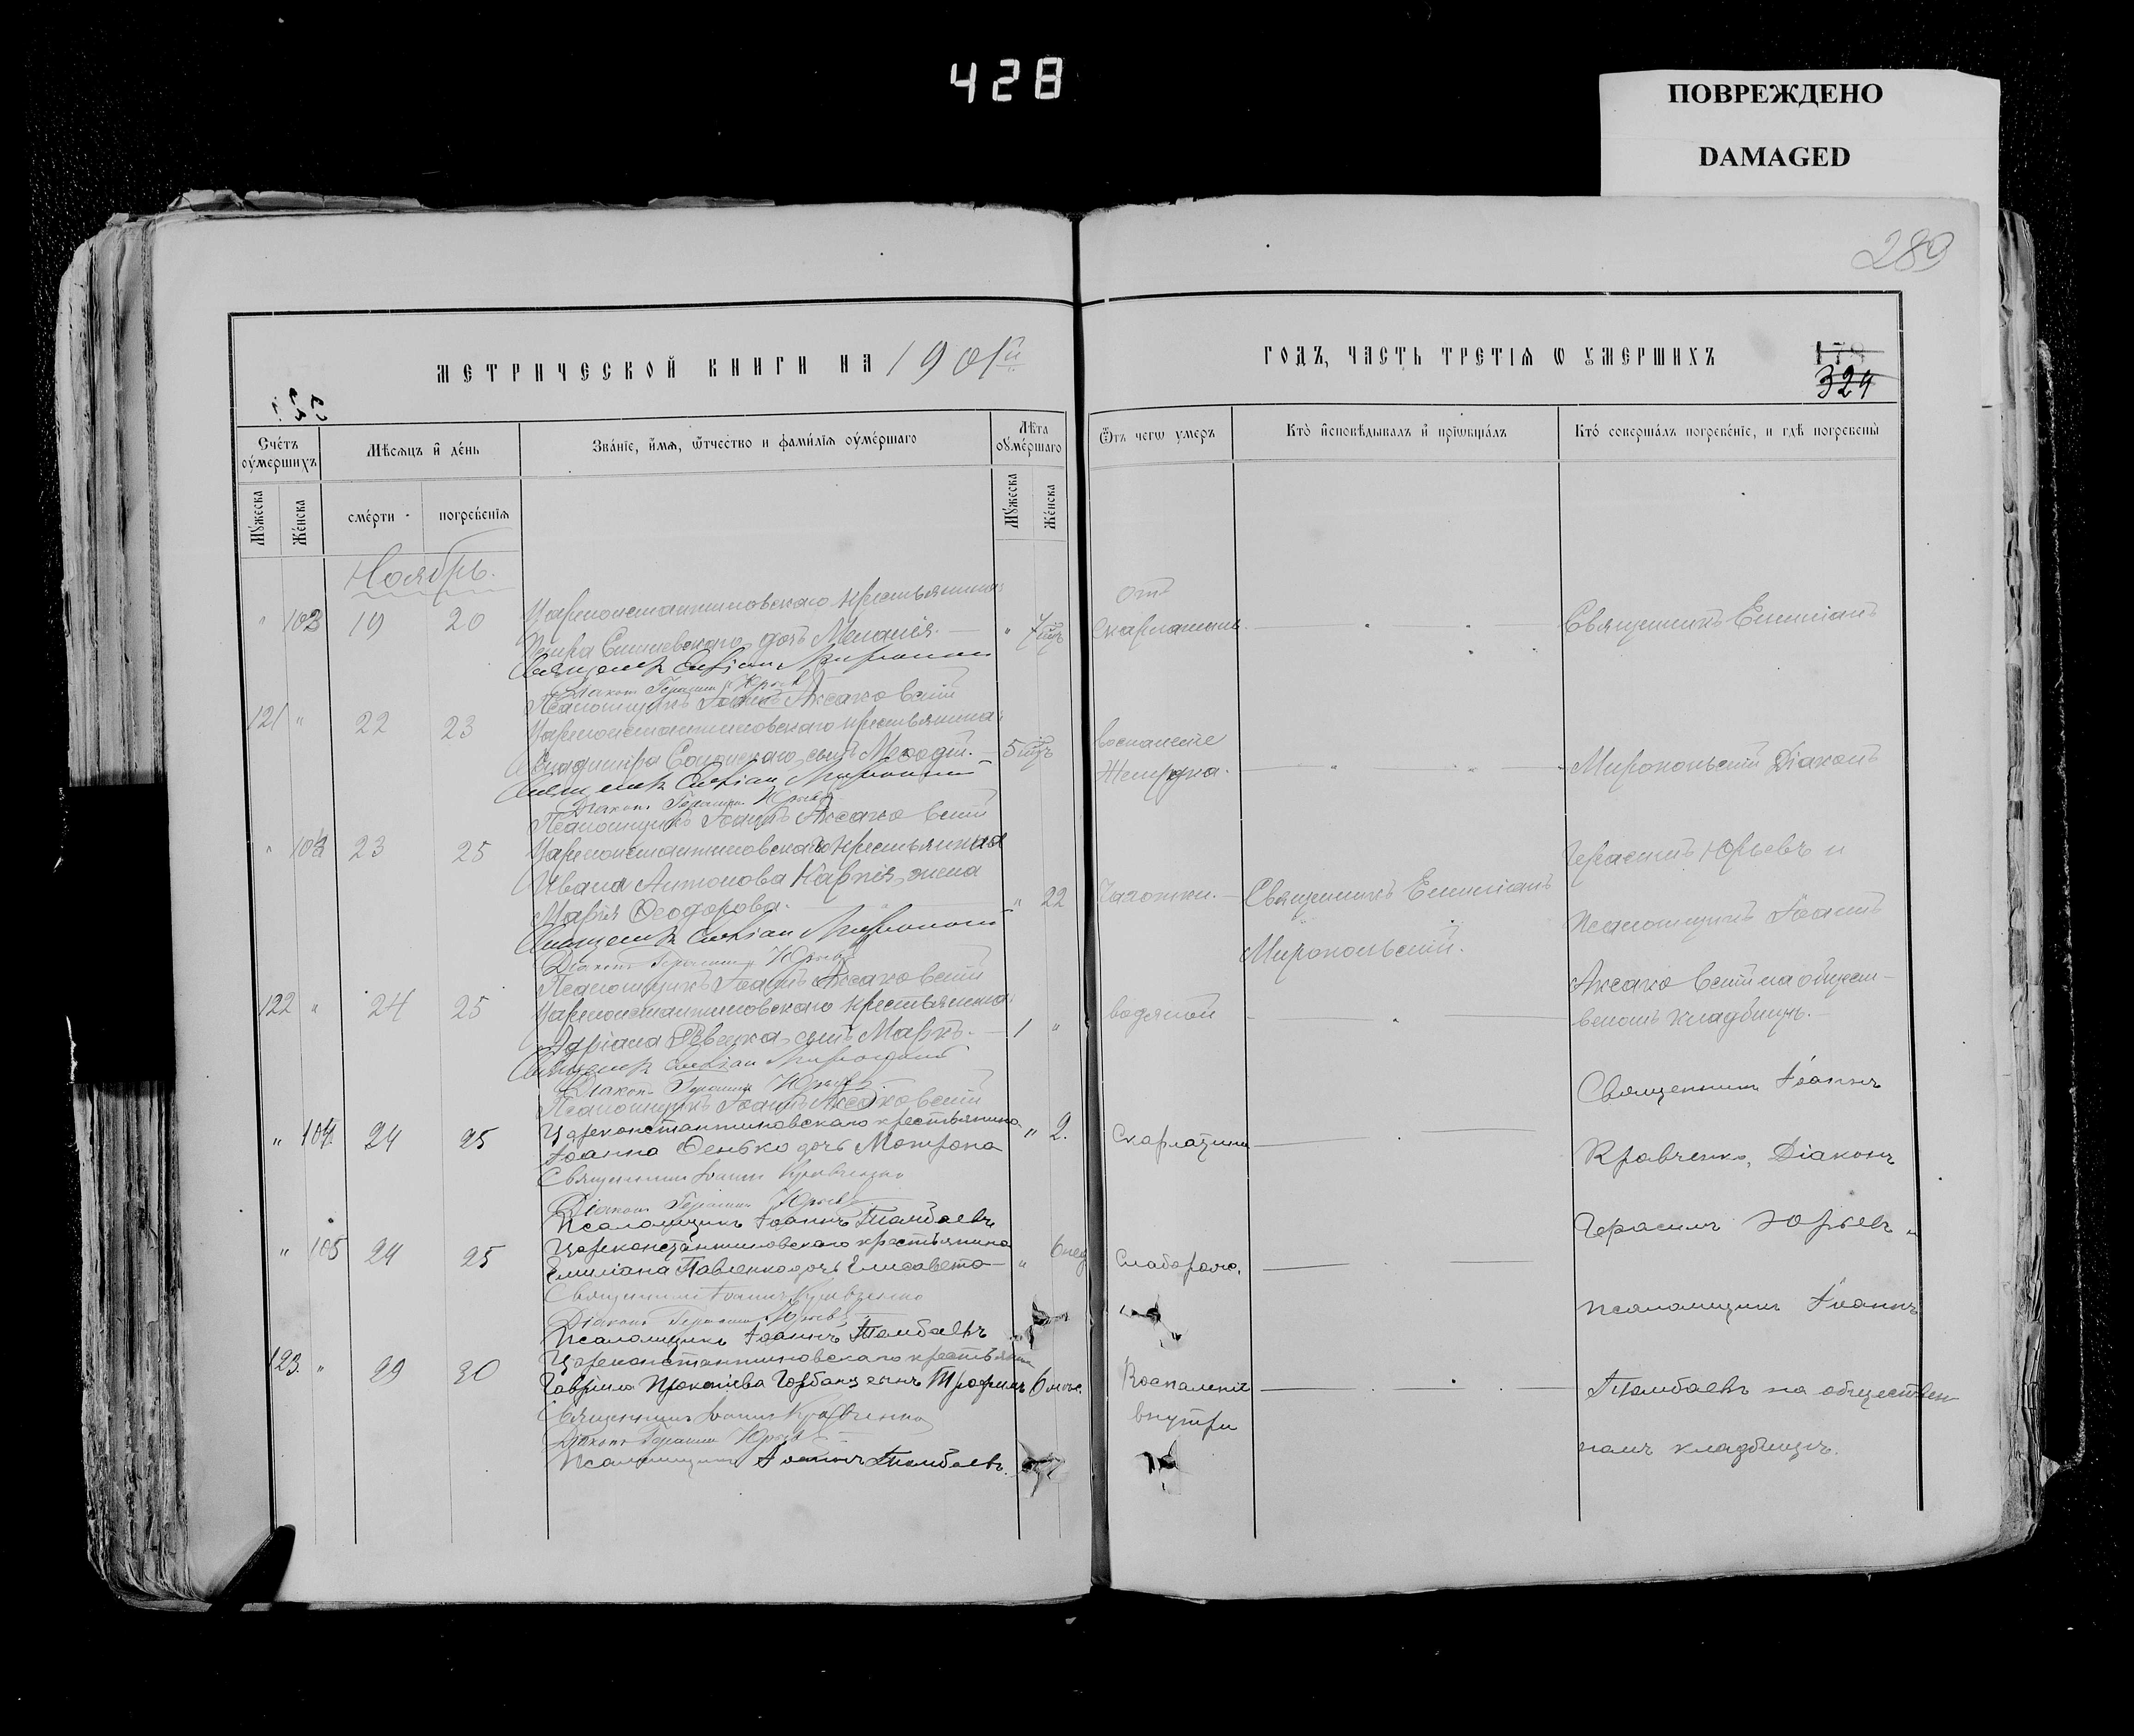 428
ПОВРЕЖДЕНО
DAMAGED
289
МЕТРИЧЕСКОЙ КНИГИ НА 1901й
ГОДЪ, ЧАСТЬ ТРЕТІЯ Ѡ УМЕРШИХЪ
329
Сче́тъ ᲂу҆ме́ршихъ
Мѣ́сѧцъ и҆ де́нь
Зва́нїе, и҆́мѧ, ѿтчество и фами́лїѧ ᲂу҆ме́ршаго
Лѣ́та ᲂу҆ме́ршаго
Ѿ чегѡ умеръ
Кто̀ и҆сповѣ́дывалъ и҆ прїѡбща́лъ
Кто́ соверша́лъ погребе́нїе, и гдѣ̀ погребены̀
Мꙋ́жеска
Же́нска
сме́рти
погребе́нїѧ
Мꙋ́жеска
Же́нска
Ноябрь.
" 102 19 20 Цареконстантиновскаго крестьянина
дочь Меланія. "
Священникъ Емиліанъ Миропольскій
Діаконъ Герасимъ Юрьевъ
Псаломщикъ Іоаннъ Аксаковскій
отъ
скарлатины.
Священникъ Емиліанъ
121 " 22 23 Цареконстантиновскаго крестьянина
Владиміра сынъ Меѳодій. 5
Священникъ Емиліанъ Миропольскій
Діаконъ Герасимъ Юрьевъ
Псаломщикъ Іоаннъ Аксаковскій
воспаленіе
желудка.
Миропольскій Діаконъ
" 103 23 25 Цареконстантиновскаго крестьянина
Ивана Антонова Карпія жена
Марія Ѳеодорова. " 22
Священникъ Емиліанъ Миропольскій
Діаконъ Герасимъ Юрьевъ
Псаломщикъ Іоаннъ Аксаковскій
Чахотки.
Священникъ Емиліанъ
Миропольскій.
Герасимъ Юрьевъ и
Псаломщикъ Іоаннъ
Аксаковскій на общест-
венномъ кладбищѣ.
122 " 24 25 Цареконстантиновскаго крестьянина
Адріана сынъ Маркъ. 1 "
Священникъ Емиліанъ Миропольскій
Діаконъ Герасимъ Юрьевъ
Псаломщикъ Іоаннъ Аксаковскій
водяной
" 104 24 25 Цареконстантиновскаго крестьянина
Іоанна Сенько дочь Мотрона " 2.
Священникъ Іоаннъ Кравченко
Діаконъ Герасимъ Юрьевъ
Псаломщикъ Іоаннъ Томбаевъ
Скарлатины
Священникъ Іоаннъ
Кравченко, Діаконъ
Герасимъ Юрьевъ и
" 105 24 25 Цареконстантиновскаго крестьянина
Емиліана Павленко дочь Елисавета " 6 нед
Священникъ Іоаннъ Кравченко
Діаконъ Герасимъ Юрьевъ
Псаломщикъ Іоаннъ Томбаевъ
псаломщикъ Іоаннъ
123 " 29 30 Цареконстантиновскаго крестьянина
Гавріила Прокопіева Горбань сынъ Трофимъ 6 мѣс.
Священникъ Іоаннъ Кравченко
Діаконъ Герасимъ Юрьевъ
Псаломщикъ Іоаннъ Томбаевъ.
Воспаленіе
внутри
Томбаевъ на обществен
номъ кладбищѣ.